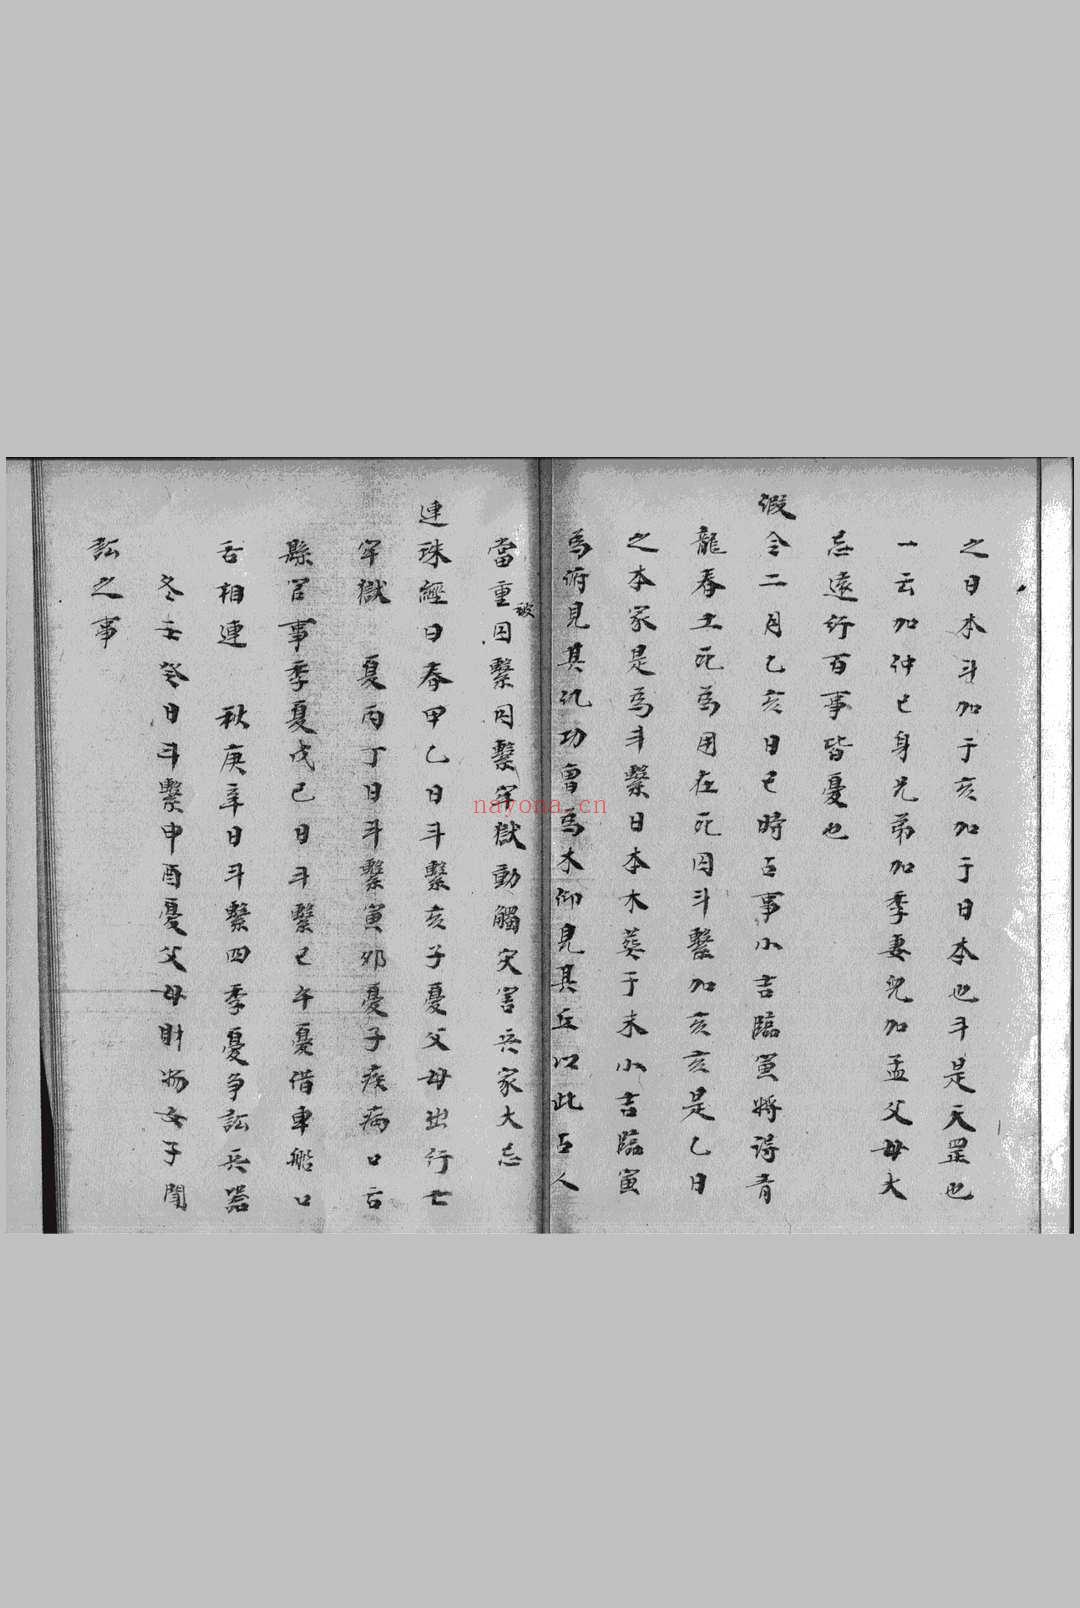 之日本斗加于亥加于日本也斗是天罡也
一云加仲己身兄弟加季妻兒加孟父母大
忌遠行百事皆憂也
假令二月乙亥日巳時占事小吉臨寅將得青
龍春土死為用在死囚斗繫加亥亥是乙日
之本家是為斗繫日本木葬于未小吉臨寅
為俯見其仇功曹為木仰見其丘以此占人
當重囚繫囚繫牢獄動觸灾害兵家大忌
被
連珠經曰春甲乙日斗繫亥子憂父母出行亡
牢獄 夏丙丁日斗繫寅卯憂子疾病口舌
縣官事季夏戊己日斗繫巳午憂借車船口
舌相連 秋庚辛日斗繫四季憂争訟兵器
冬壬癸日斗繫申酉憂父母財物女子鬪
訟之事
nayona.cn